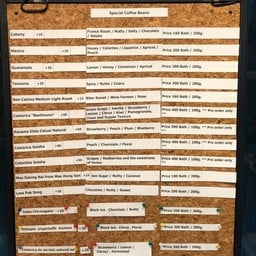 Special Coffee Beans
Cabony +10 France Roast / Nutty / Salty / Chocolate / Smoke Price 180 Bath / 200g.
Mexico +20 Honey / Celestine / Liquorice / Apricot / Peach Price 200 Bath / 200g.
Guatemala +20 Lemon / Honey / Cinnamon / Apricot Price 200 Bath / 200g.
Tanzania +20 Spicy / Nutty / Cuaco Price 200 Bath / 200g.
Non Calinno Medium Light Roast +15 Bitter Sweet / Wine Herman / Rose Price 200 Bath / 200g.
Costarica "Beethoven" +50 Green Grape / Vanilla / Strawberry / Lemon / Citrus / Kiwi / Pomegranate, Clean and Supple Texture Price 400 Bath / 200g. ** Pre order only **
Panama Elida Catuai Natural +50 Strawberry / Peach / Plum / Blueberry Price 390 Bath / 200g. ** Pre order only **
Costarica Geisha +90 Peach / Chocolate / Floral Price 400 Bath / 200g. ** Pre order only **
Colombia Geisha +50 Grapes / Redberries and the sweetness of honey Price 400 Bath / 200g. ** Pre order only **
Mae Salong Noi from Mae Hong Son +20 Sugar / Nutty / Caramel Price 180 Bath / 200g.
Laos Pyk Song +20 Chocolate / Nutty / Sweet Price 200 Bath / 200g.
India Chicmagalur +20 Black tea, Chocolate / Nutty Price 200 Bath / 200g.
Ethiopia yirgacheffe kochere +20 Black tea, Citrus, Floral Price 200 Bath / 200g.
Costarica Strawberry / Lemon / Citrus / Price 300 Bath / 200g.